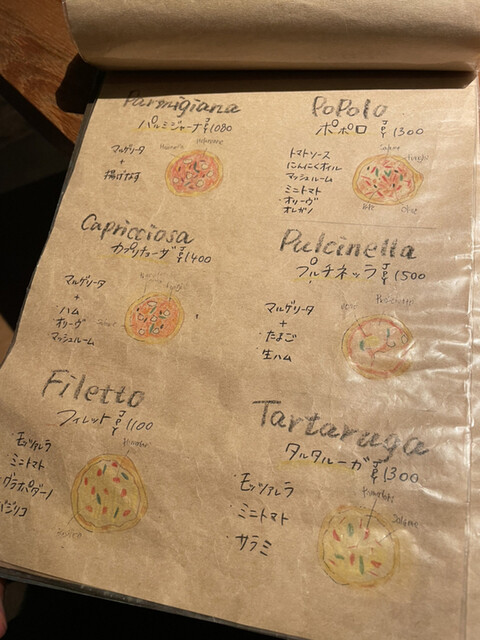 Parmigiana
パルミジャーナ JPY 1080
マルゲリータ
+
揚げなす
PoPolo
ポポロ JPY 1300
トマトソース
にんにくオイル
マッシュルーム
ミニトマト
・オリーヴ
オレガノ
Capricciosa
カプリチョーザ JPY 1400
マルゲリータ
+
・ハム
・オリーヴ
マッシュルーム
Pulcinella
プルチネッラ JPY 1500
マルゲリータ
+
・たまご
・生ハム
Prosciutto
Filetto
フィレット JPY 1100
・モッツァレラ
・ミニトマト
・グラナパダーノ
バジリコ
Tartaruga
タルタルーガ JPY 1300
・モッツァレラ
・ミニトマト
・サラミ
Salame